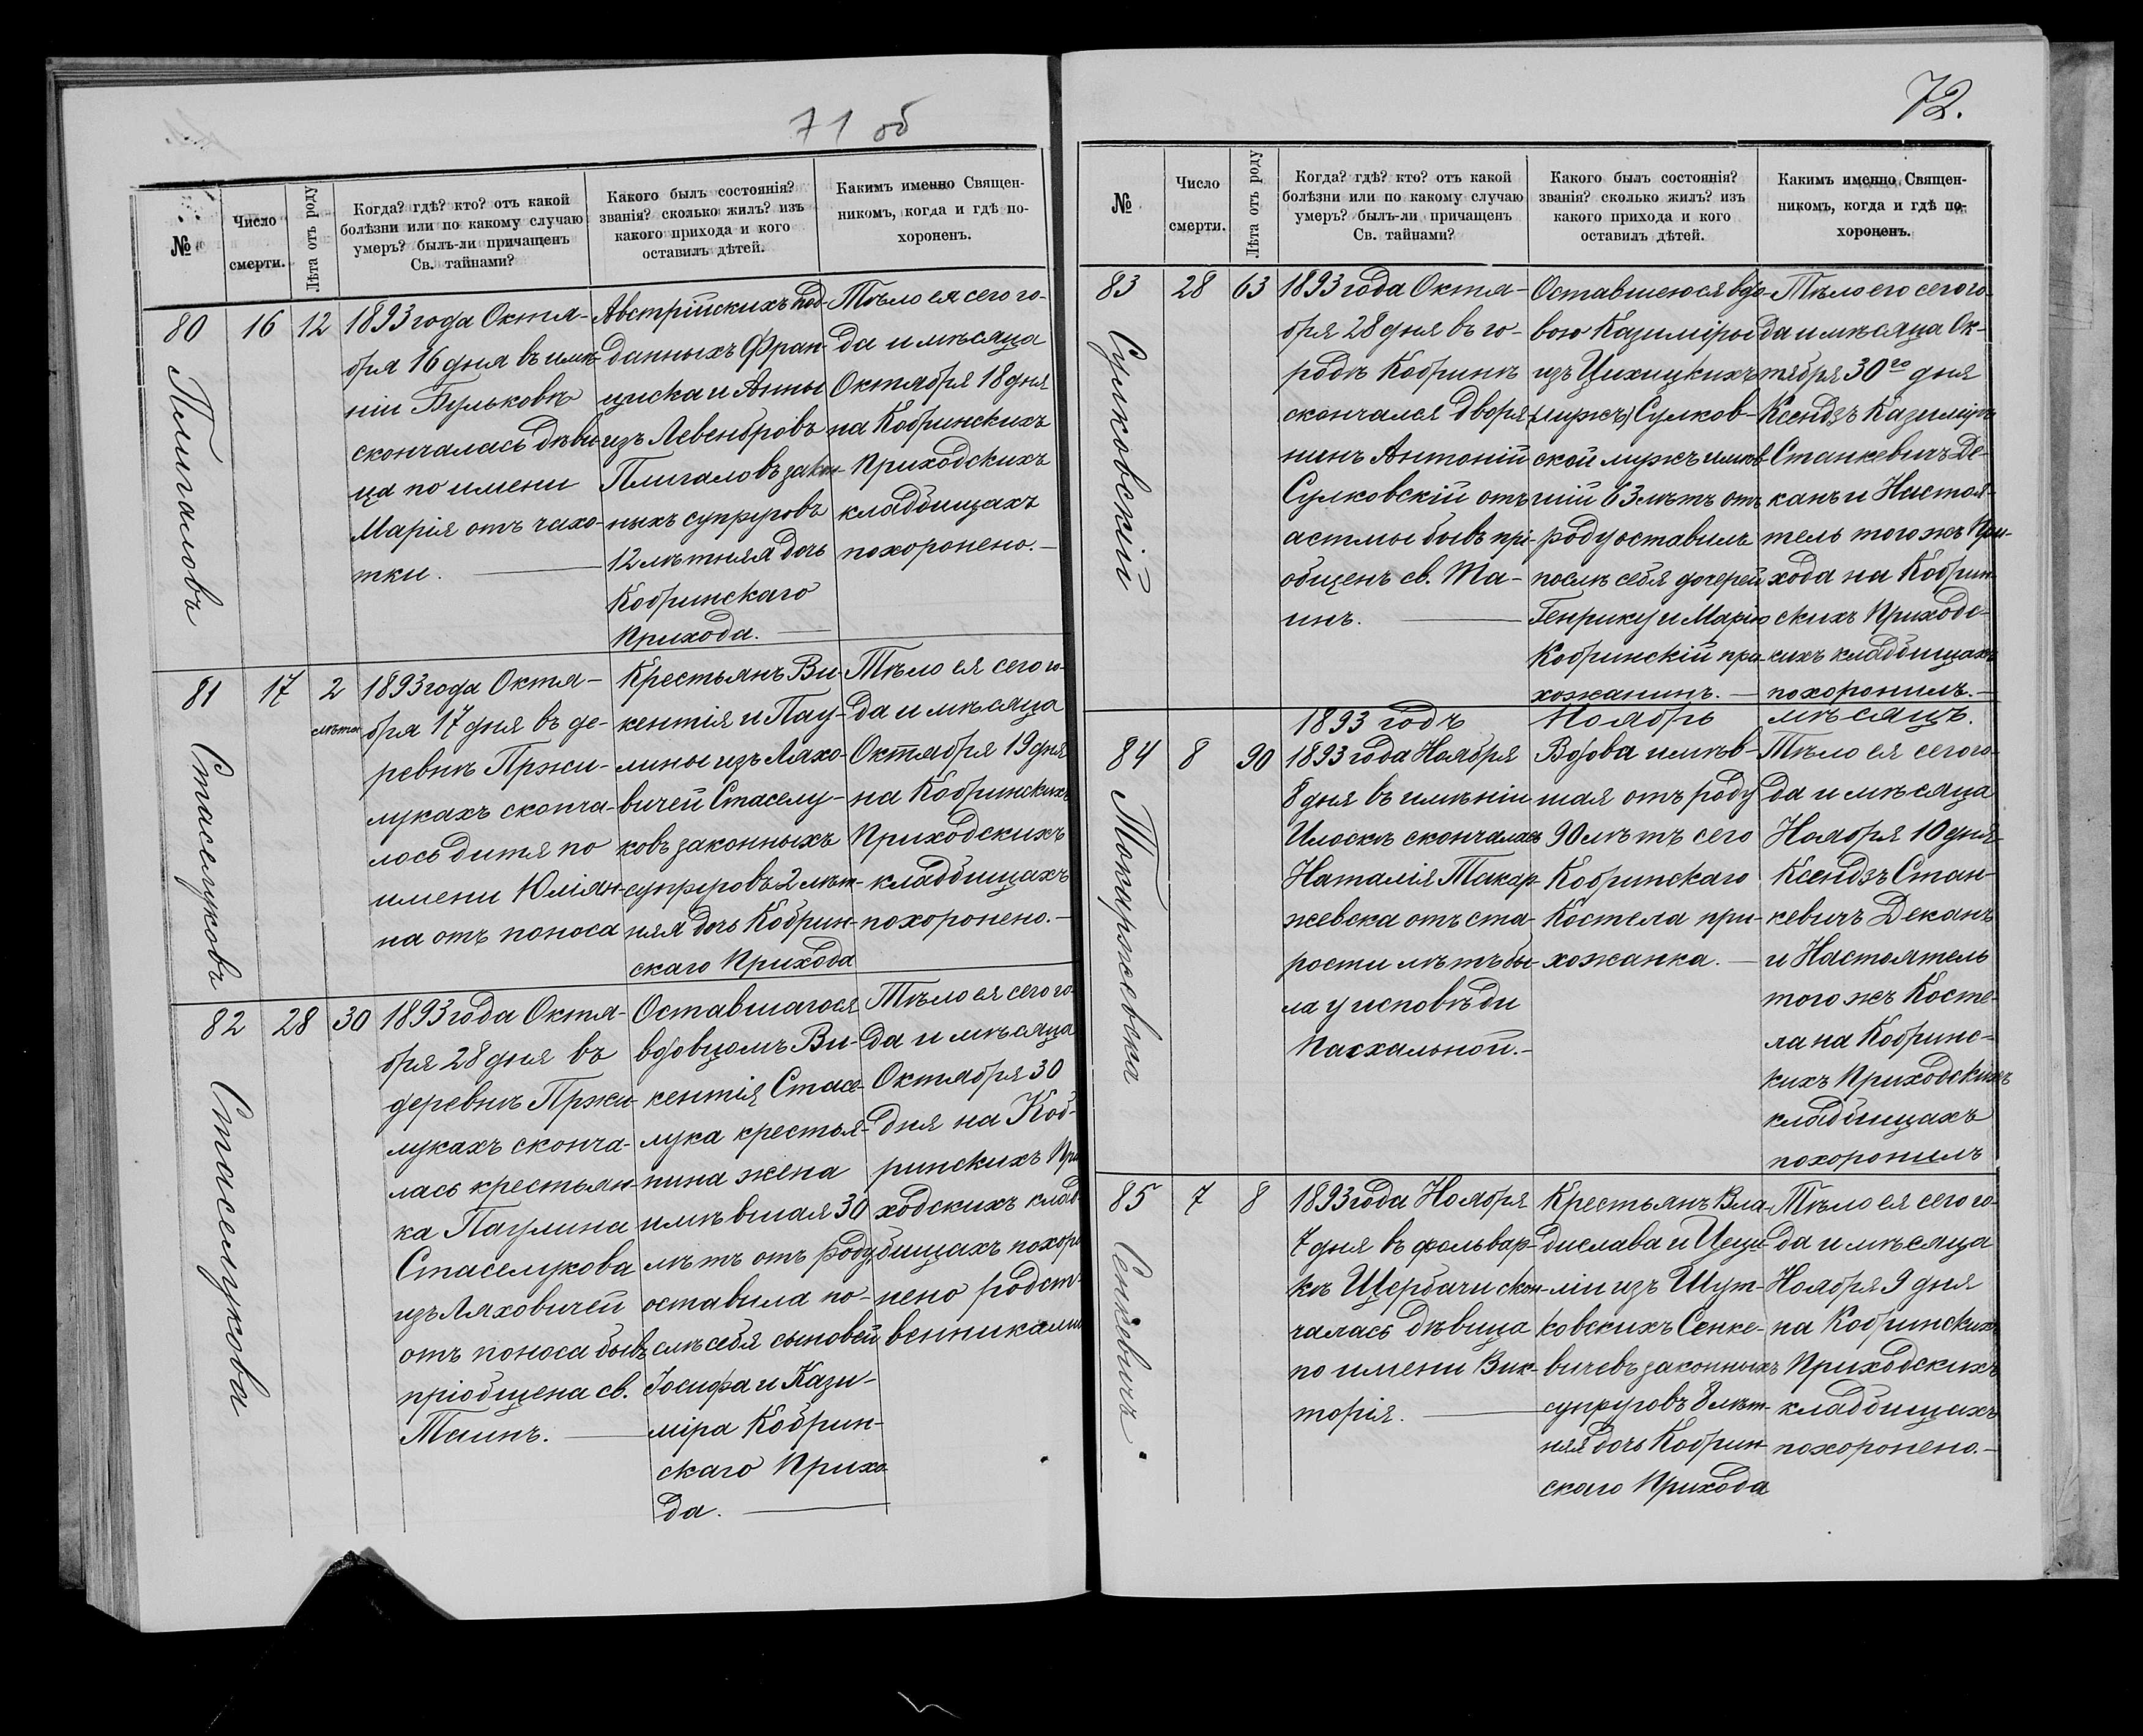 71 об
№
Число
смерти.
Лѣта отъ роду
Когда? гдѣ? кто? отъ какой
болѣзни или по какому случаю
умеръ? былъ-ли причащенъ
Св. тайнами?
Какого былъ состоянія?
званія? сколько жилъ? изъ
какого прихода и кого
оставилъ дѣтей.
Какимъ именно Священ-
никомъ, когда и гдѣ по-
хороненъ.
80
16
12
1893 года Октя-
бря 16 дня въ имѣ-
ніи Бульковѣ
скончалась дѣви-
ца по имени
Марія отъ чахо-
тки.
Австрійскихъ под-
данныхъ Фран-
циска и Анны
изъ Левенбровъ
Плигаловъ закон-
ныхъ супруговъ
12 лѣтняя дочь
Кобринскаго
Прихода.
Тѣло ея сего го-
да и мѣсяца
Октября 18 дня
на Кобринскихъ
Приходскихъ
кладбищахъ
похоронено.
81
Стаселюковъ
17
2
лѣта
1893 года Октя-
бря 17 дня въ де-
ревнѣ Пржи-
лукахъ сконча-
лось дитя по
имени Юліян-
на отъ поноса
Крестьянъ Ви-
кентія и Пау-
лины изъ Ляхо-
вичей Стаселю-
ковъ законныхъ
супруговъ 2 лѣт-
няя дочь Кобрин-
скаго Прихода
Тѣло ея сего го-
да и мѣсяца
Октября 19 дня
на Кобринскихъ
Приходскихъ
кладбищахъ
похоронено.
82
Стаселюкова
28
30
1893 года Октя-
бря 28 дня въ
деревнѣ Пржи-
лукахъ сконча-
лась крестьян-
ка Паулина
Стаселюкова
изъ Ляховичей
отъ поноса бывъ
пріобщена св.
Таинъ.
Оставшагося
вдовцомъ Ви-
кентія Стасе-
люка крестья-
нина жена
имѣвшая 30
лѣтъ отъ роду,
оставила по-
слѣ себя сыновей
Іосифа и Кази-
міра Кобрин-
скаго Прихо-
да.
Тѣло ея сего го-
да и мѣсяца
Октября 30
дня на Коб-
ринскихъ При
ходскихъ клад-
бищахъ похоро
нено родст-
венниками
72.
№
Число
смерти.
Лѣта отъ роду
Когда? гдѣ? кто? отъ какой
болѣзни или по какому случаю
умеръ? былъ-ли причащенъ
Св. тайнами?
Какого былъ состоянія?
званія? сколько жилъ? изъ
какого прихода и кого
оставилъ дѣтей.
Какимъ именно Священ-
никомъ, когда и гдѣ по-
хороненъ.
83
Сулковскій
28
63
1893 года Октя-
бря 28 дня въ го-
родѣ Кобринѣ
скончался дворя-
нинъ Антоній
Сулковскій отъ
астмы бывъ прі-
общенъ св. Та-
инъ.
Оставшеюся вдо-
вою Казиміры
изъ Цихицкихъ
(мужъ) Сулков-
ской мужъ имѣв
шій 63 лѣтъ отъ
роду оставилъ
послѣ себя дочерей
Генрику и Марію
Кобринскій при-
хожанинъ.
Тѣло его сего го-
да и мѣсяца Ок-
тября 30го дня
Ксендзъ Казиміръ
Станкевичъ Де-
канъ и Настоя-
тель того жъ При-
хода на Кобрин-
скихъ Приходс-
кихъ кладбищахъ
похоронилъ.
1893 годъ Ноябрь мѣсяцъ.
84
Токаржевска
8
90
1893 года Ноября
8 дня въ имѣніи
Илоскѣ скончалась
Наталія Такар-
жевска отъ ста-
рости лѣтъ бы-
ла у исповѣди
Пасхальной.
Вдова имѣв-
шая отъ роду
90 лѣтъ сего
Кобринскаго
Костела при-
хожанка.
Тѣло ея сего го-
да и мѣсяца
Ноября 10 дня
Ксендзъ Стан-
кевичъ Деканъ
и Настоятель
того жъ Косте-
ла на Кобринс-
кихъ Приходскихъ
кладбищахъ
похоронилъ
85
Сенкевичъ
7
8
1893 года Ноября
7 дня въ фольвар-
кѣ Щербачи скон-
чалась дѣвица
по имени Вик-
торія.
Крестьянъ Вла-
дислава и Цеци-
ліи изъ Шут-
ковскихъ Сенке-
вичевъ законныхъ
супруговъ 8 лѣт-
няя дочь Кобрин-
скаго Прихода
Тѣло ея сего го-
да и мѣсяца
Ноября 9 дня
на Кобринскихъ
Приходскихъ
кладбищахъ
похоронено.